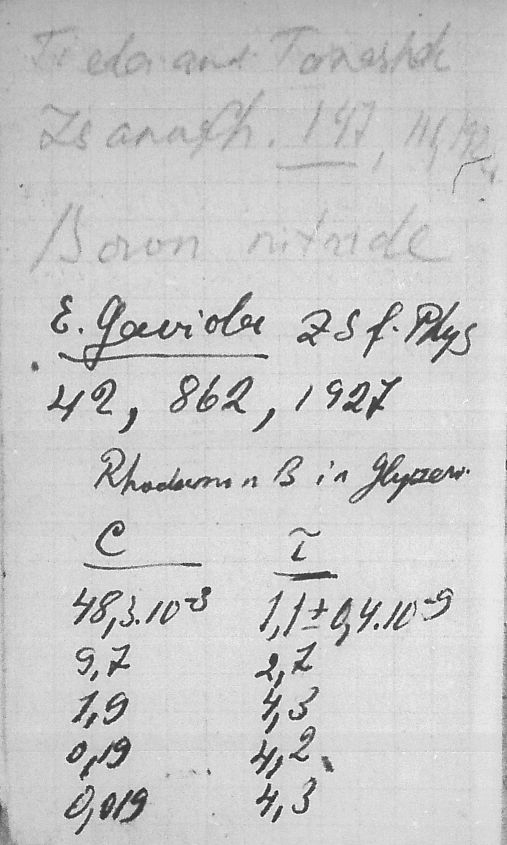 Tiede and Tomaschek
Zs anorg. Ch. 147, 111, 192
Boron nitride
E. Gaviola ZS f. Phys
42, 862, 1927
Rhodamin B in Glyzerin
C τ
48,3.10⁻³ 1,1 ± 0,4.10⁻⁹
9,7 2,7
1,9 4,3
0,19 4,2
0,019 4,3